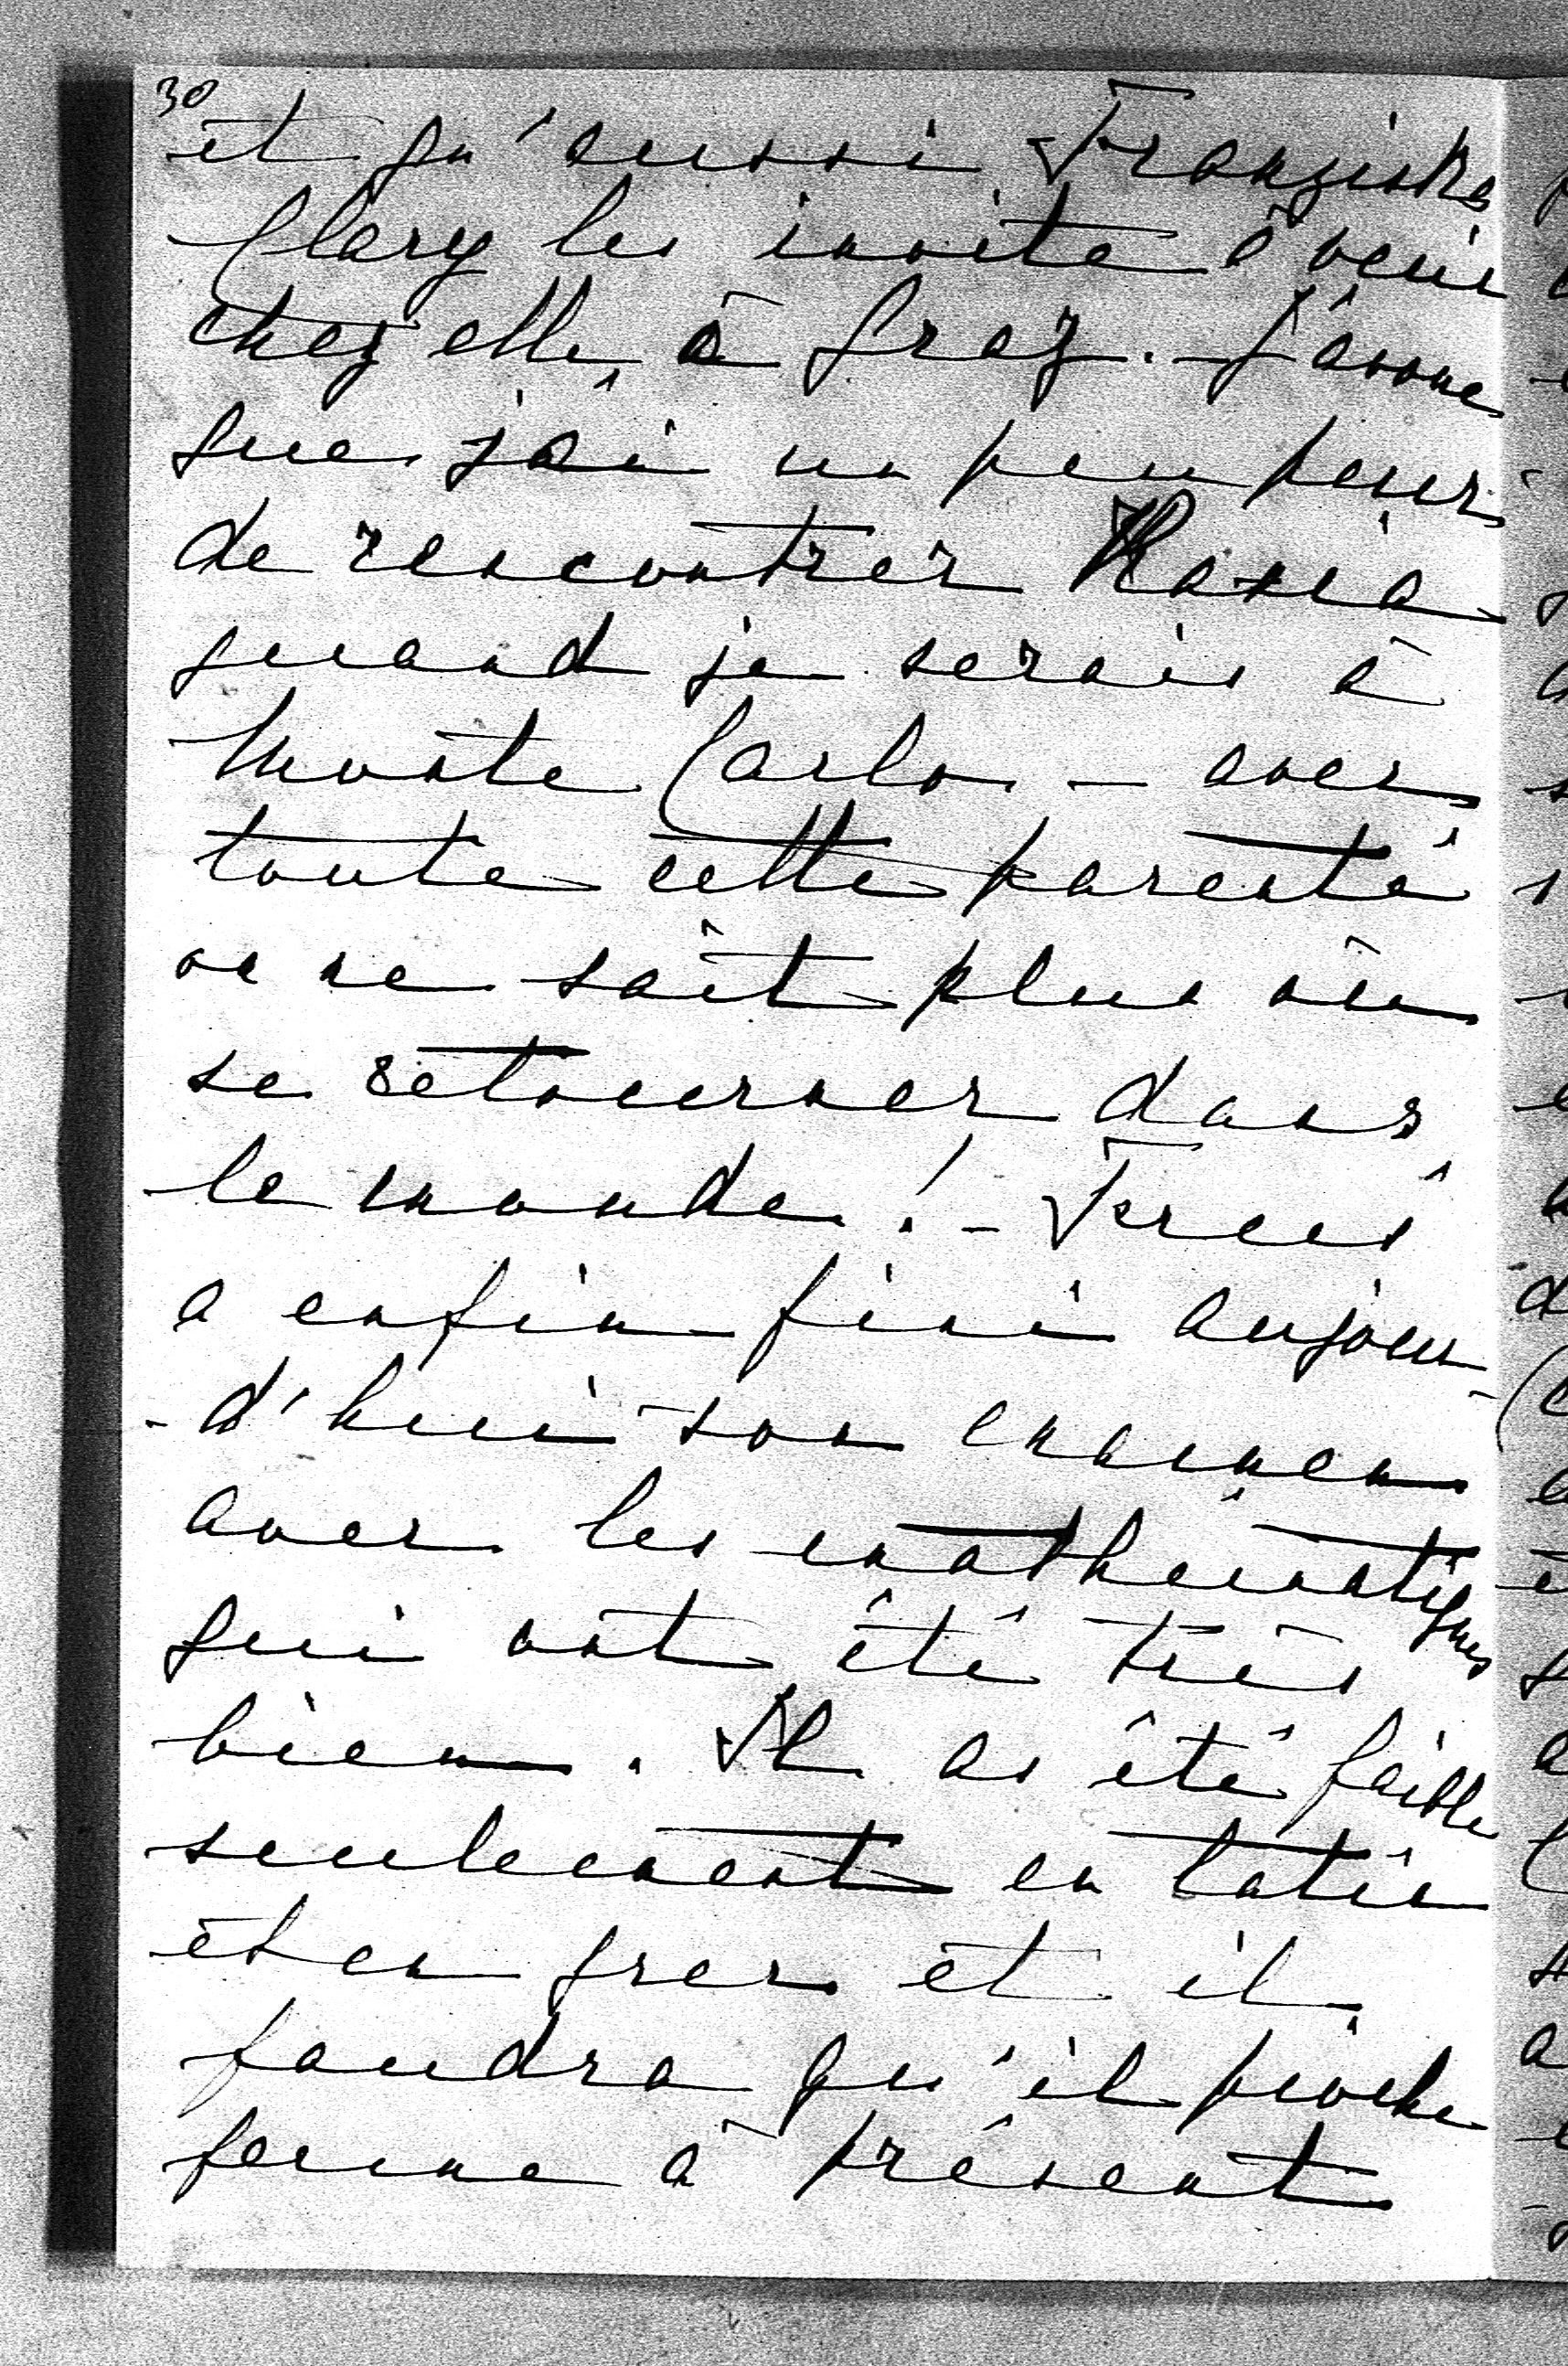 30
et qu'aussi Franziska
Clary les invite à venir
chez elle à Graz. - J'avoue
que j'ai un peu peur
de rencontrer Maria
quand je serais à
Monte Carlo - avec
toute cette parenté
on ne sait plus où
se retourner dans
le monde! -
a enfin fini aujour-
-d'hui son examen
avec les mathématiques
qui ont été très
bien. Il as été faible
seulement en latin
et en grec et il
faudra qu'il pioche
ferme à présent